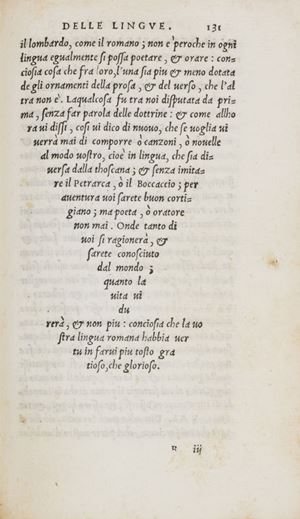 DELLE LINGVE. 131
il lombardo, come il romano; non e' peroche in ogni
lingua egualmente si possa poetare, & orare: con-
ciosia cosa che fra loro, l'una sia piu & meno dotata
de gli ornamenti della prosa, & del verso, che l'al
tra non è. Laqualcosa fu tra noi disputata da pri-
ma, senza far parola delle dottrine: & come allho
ra ui dissi, cosi ui dico di nuouo, che se uoglia ui
uerrà mai di comporre ò canzoni, ò nouelle
al modo uostro, cioè in lingua, che sia di-
uersa dalla thoscana; & senza imita-
re il Petrarca, ò il Boccaccio; per
auentura uoi sarete buon corti-
giano; ma poeta, ò oratore
non mai. Onde tanto di
uoi si ragionerà, &
sarete conosciuto
dal mondo;
quanto la
uita ui
du
rerà, & non piu: conciosia che la uo
stra lingua romana habbia uer
tu in farui piu tosto gra
tioso, che glorioso.
R iij